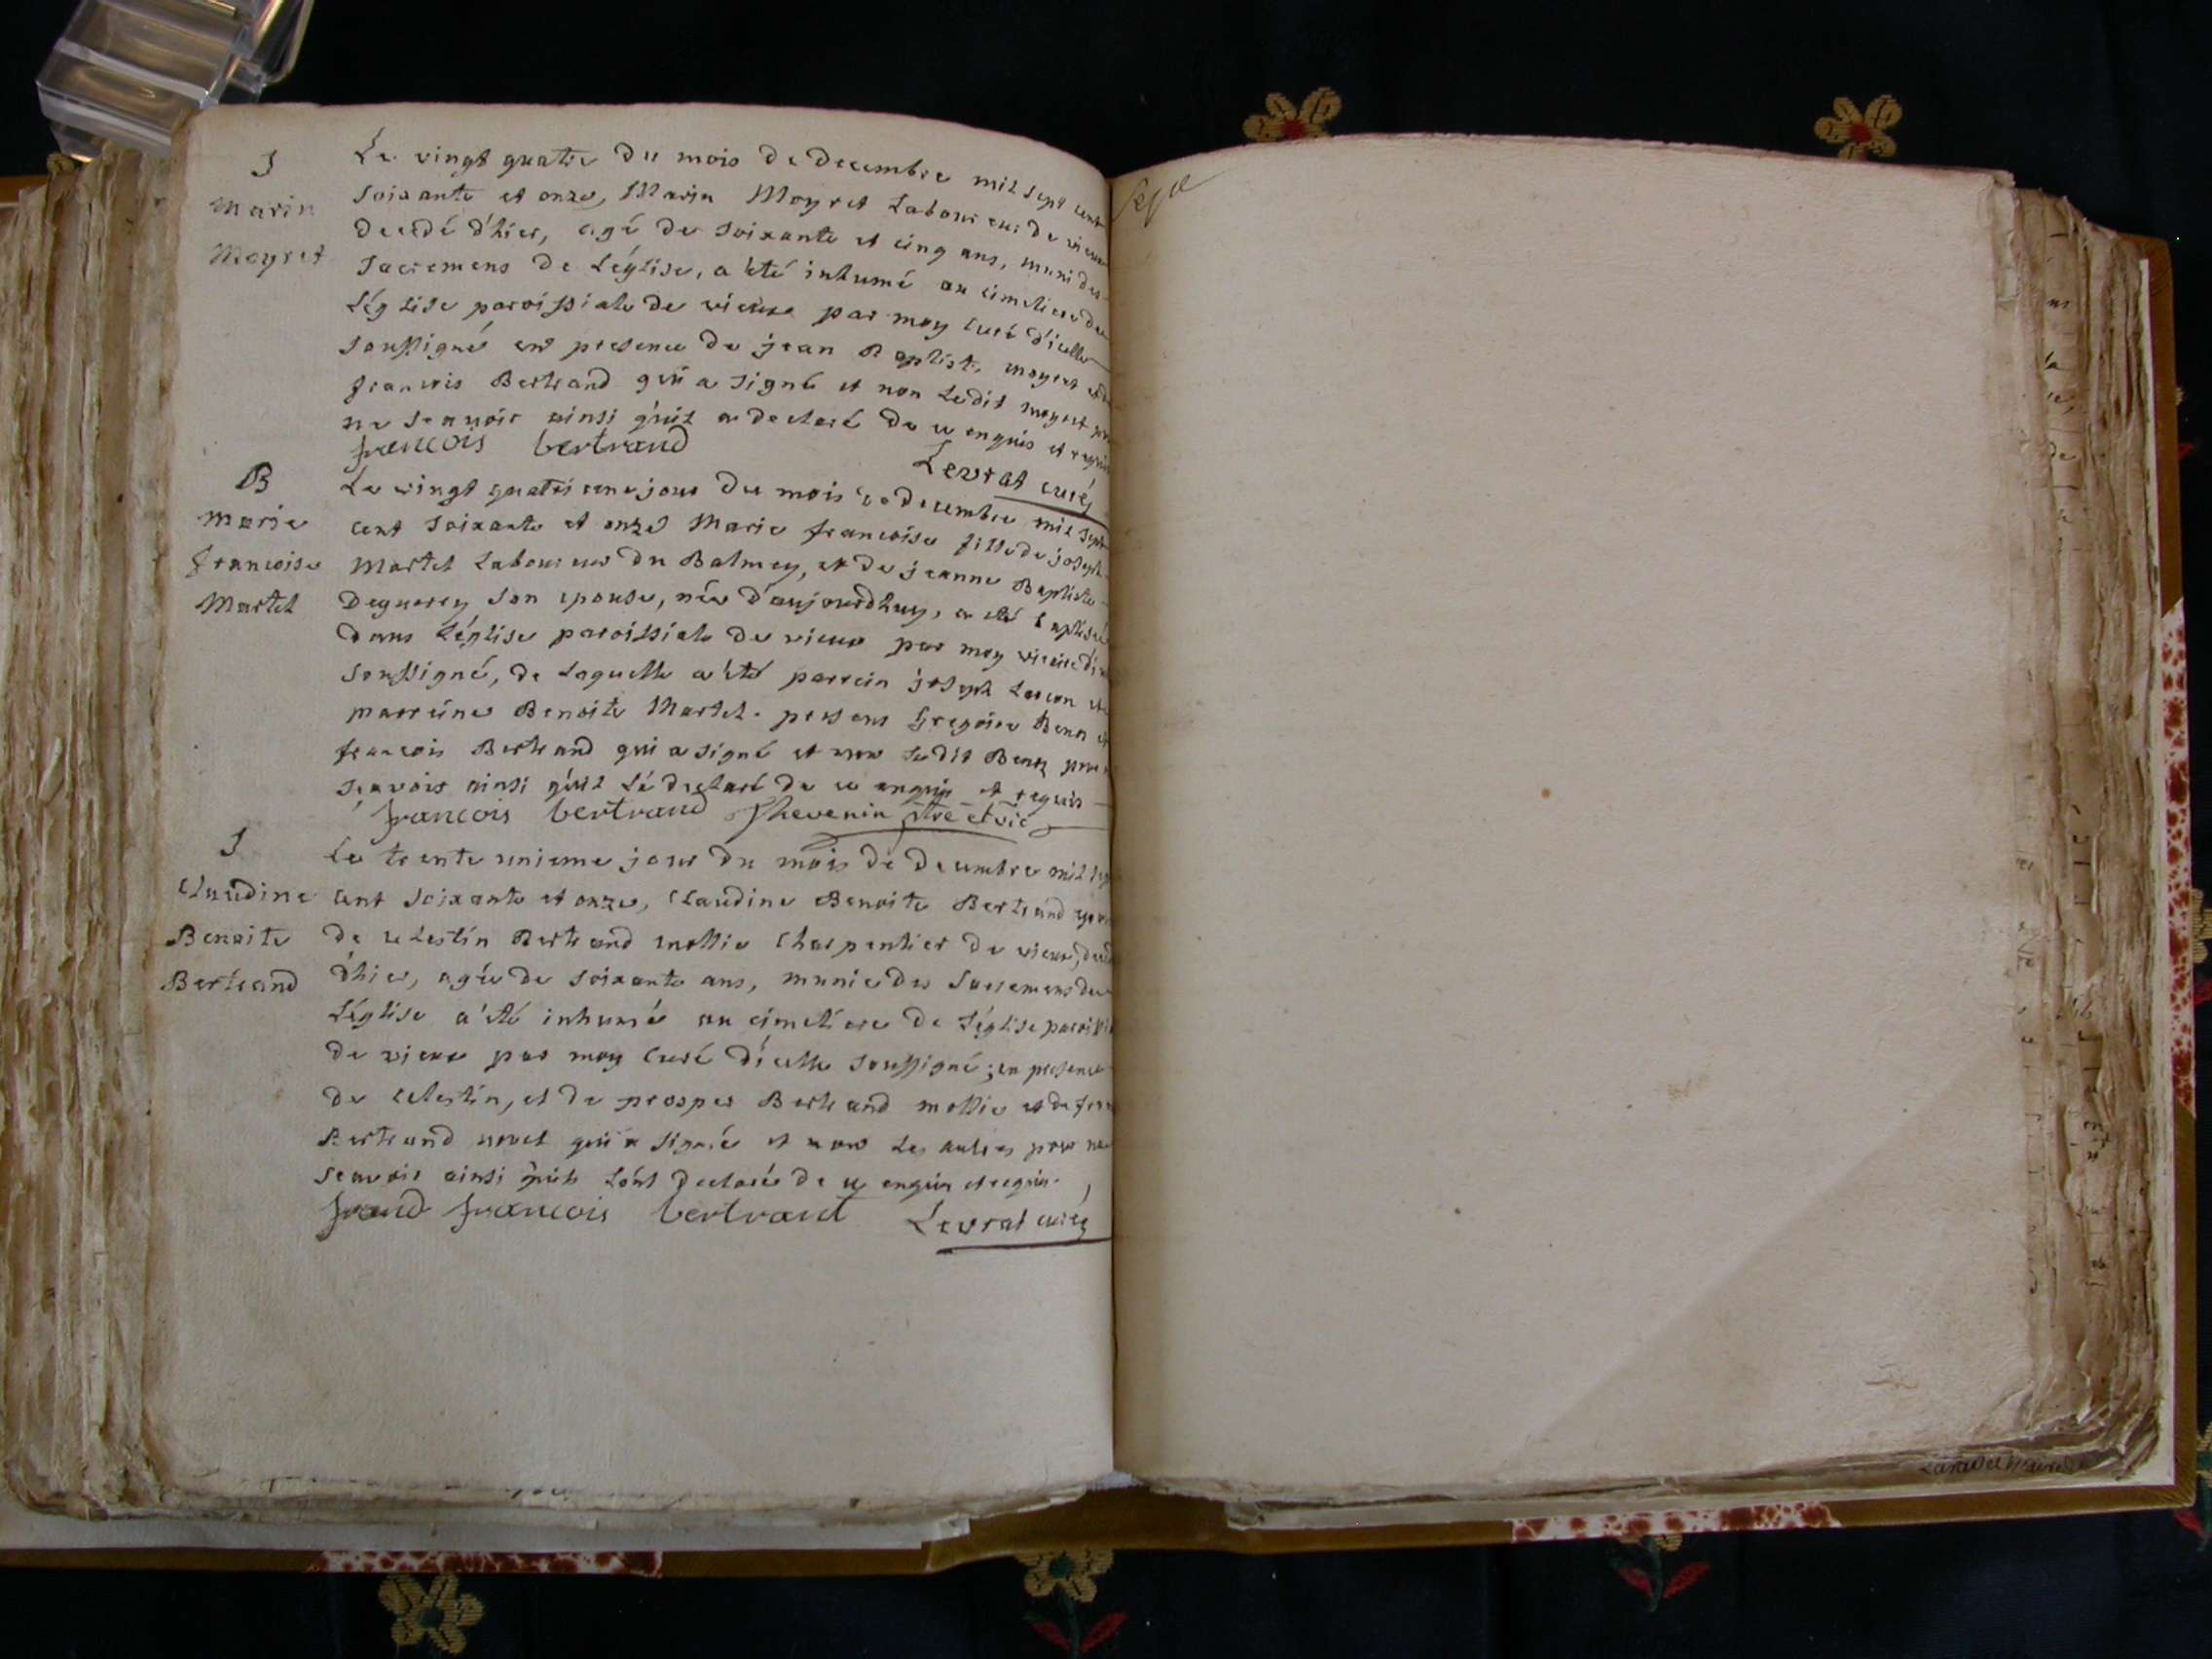 S
Marin
Moyret
Le vingt quatre du mois de decembre mil sept cent
soixante et onze, Marin Moyret Laboureur de vieux
decedé d'hier, agé de soixante et cinq ans, muni des
sacremens de L'église, a été inhumé au cimetiere de
L'église paroissiale de vieux par moy curé d'icelle
soussigné en presence de jean Baptiste moyret et de
francois Bertrand qui a signé et non Ledit moyret pour
ne scavoir ainsi qu'il a declaré de ce enquis et requis
francois bertrand
Levrat curé
B
Marie
francoise
Martel
Le vingt quatrieme jour du mois de decembre mil sept
cent soixante et onze Marie francoise fille de joseph
Martel Laboureur du Balmey, et de jeanne Baptiste
son epouse, née d'aujourdhuy, a été baptisée
dans L'église paroissiale de vieux par moy vicaire
soussigné, de Laquelle a été parrein joseph et
marreine Benoite Martel. presens Gregoire et
francois Bertrand qui a signé et non Ledit pour
scavoir ainsi qu'il L'a declaré de ce enquis et requis
francois bertrand Thevenin ptre et vic
S
Claudine
Benoite
Bertrand
Le trente unieme jour du mois de decembre mil sept
cent soixante et onze, Claudine Benoite Bertrand
de celestin Bertrand mollie Charpentier de vieux, decedée
d'hier, agée de soixante ans, munie des sacremens de
L'église a été inhumé au cimetiere de L'église paroissiale
de vieux par moy Curé d'icelle soussigné; en presence
de celestin, et de prosper Bertrand mollie et de
Bertrand qui a signé et non Les autres pour ne
scavoir ainsi qu'ils L'ont declaré de ce enquis et requis
francois bertrand Levrat curé